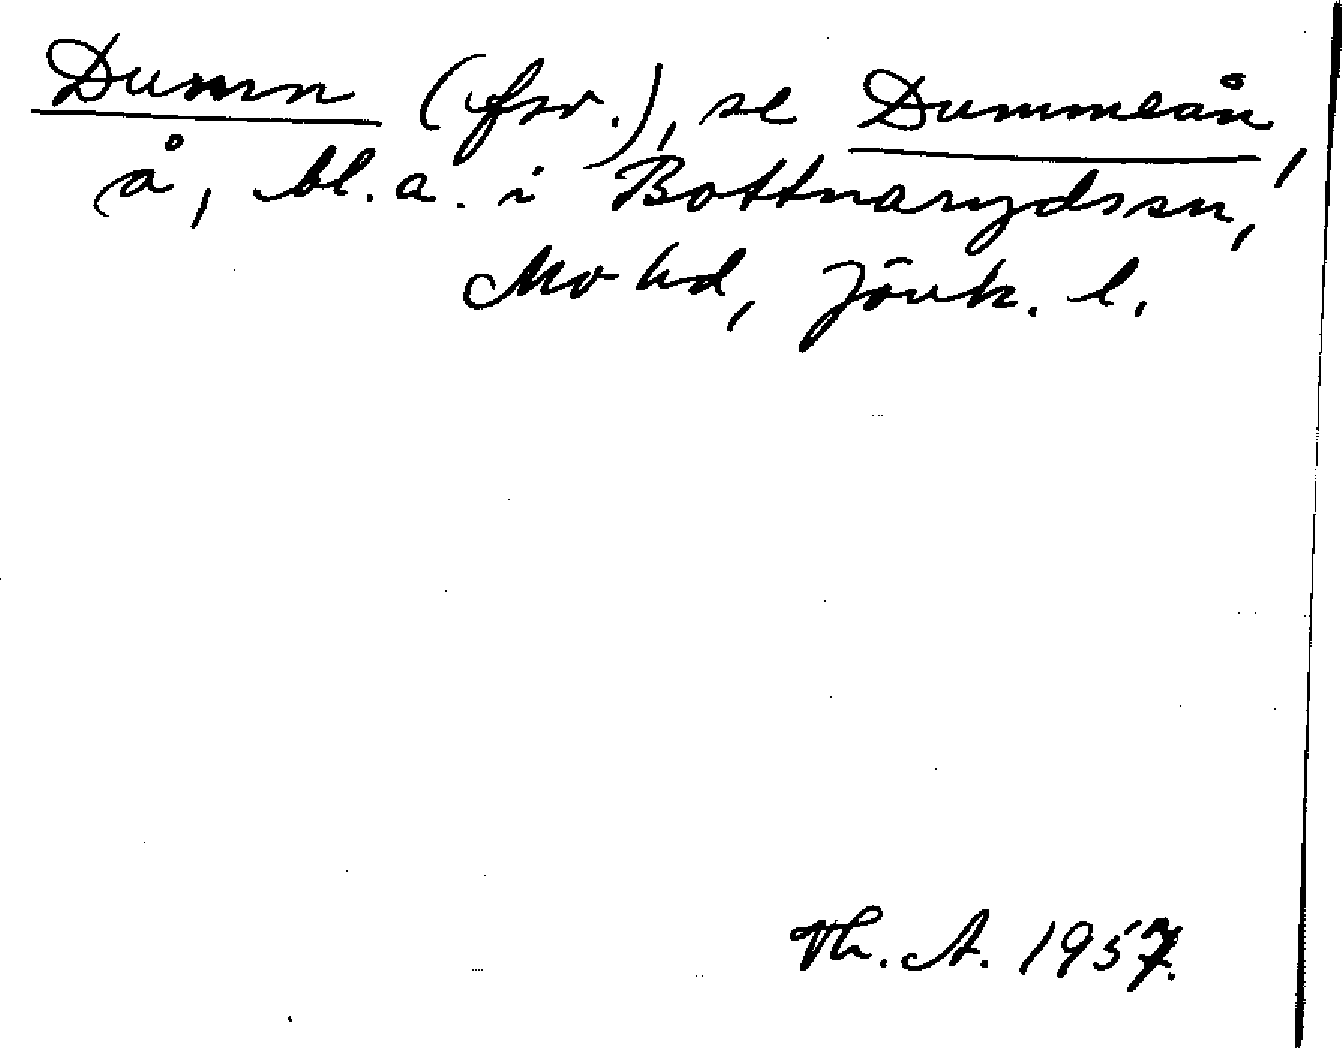 Dumn (fsv.), se Dummeån,
å, bl. a. i Bottnaryds sn,
Mo hd, Jönk. l.
Th. A. 1957.